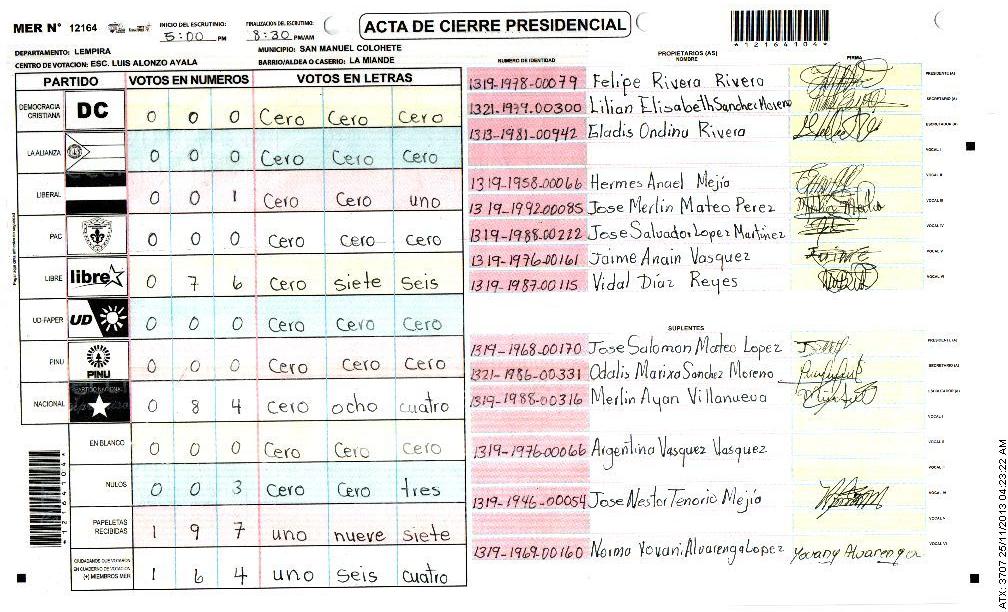 MER N° 12164
INICIO DEL ESCRUTINIO: 5:00 PM
FINALIZACION DEL ESCRUTINIO: 8:30 PM/AM
ACTA DE CIERRE PRESIDENCIAL
*12164104*
DEPARTAMENTO: LEMPIRA
MUNICIPIO: SAN MANUEL COLOHETE
CENTRO DE VOTACION: ESC. LUIS ALONZO AYALA
BARRIO/ALDEA O CASERIO: LA MIANDE
PARTIDO VOTOS EN NUMEROS VOTOS EN LETRAS
DEMOCRACIA CRISTIANA DC 0 0 0 Cero Cero Cero
LA ALIANZA 0 0 0 Cero Cero Cero
LIBERAL 0 0 1 Cero Cero uno
PAC 0 0 0 Cero Cero Cero
LIBRE libre 0 7 6 Cero siete seis
UD-FAPER UD 0 0 0 Cero Cero Cero
PINU PINU 0 0 0 Cero Cero Cero
NACIONAL 0 8 4 Cero ocho cuatro
EN BLANCO 0 0 0 Cero Cero Cero
NULOS 0 0 3 Cero Cero tres
PAPELETAS RECIBIDAS 1 9 7 uno nueve siete
CIUDADANOS QUE VOTARON EN CUADERNO DE VOTACION (+) MIEMBROS MER 1 6 4 uno seis cuatro
*12164104*
NUMERO DE IDENTIDAD
PROPIETARIOS (AS)
NOMBRE
FIRMA
1319-1978-00079 Felipe Rivera Rivera PRESIDENTE (A)
1321-1979.00300 Lilian Elisabeth Sanchez Moreno SECRETARIO (A)
1313-1981-00942 Eladis Ondina Rivera ESCRUTADOR (A)
VOCAL I
1319-1958-00066 Hermes Anael Mejía VOCAL II
1319-1992-00085 Jose Merlin Mateo Perez VOCAL III
1319-1988-00222 Jose Salvador Lopez Martinez VOCAL IV
1319-1976-00161 Jaime Anain Vasquez Jaime VOCAL V
1319-1987-00115 Vidal Díaz Reyes VOCAL VI
SUPLENTES
1319-1968-00170 Jose Salomon Mateo Lopez PRESIDENTE (A)
1321-1986-00331 Odalis Mariza Sanchez Moreno SECRETARIO (A)
1319-1988-00316 Merlin Ayan Villanueva ESCRUTADOR (A)
VOCAL I
1319-1976-00066 Argentina Vasquez Vasquez VOCAL II
1319-1946-00054 Jose Nestor Tenorio Mejía VOCAL IV
VOCAL V
1319-1969-00160 Norma Yovani Alvarenga Lopez Yovany Alvarenga VOCAL VI
ATX: 3707 25/11/2013 04:23:22 AM